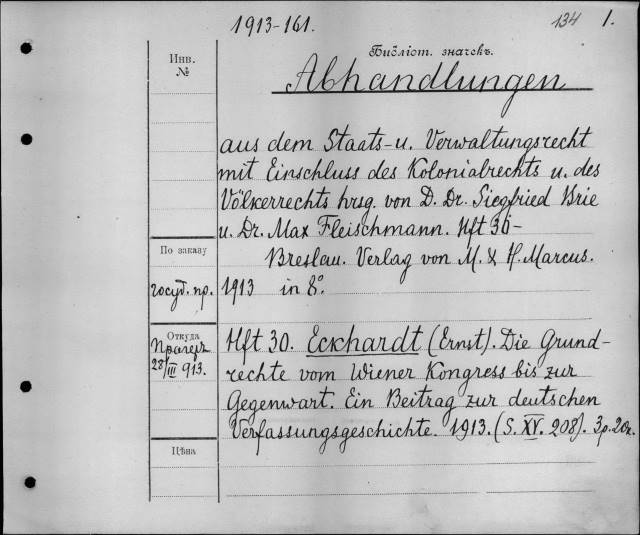 1913-161.
134 1.
Инв. №
Библіот. значекъ.
Abhandlungen
aus dem Staats- u. Verwaltungsrecht
mit Einschluss des Kolonialrechts u. des
Völkerrechts hrsg. von D. Dr. Siegfried Brie
u. Dr. Max Fleischmann. Hft 30-
По заказу
Breslau. Verlag von M. & H. Marcus.
госуд. пр.
1913 in 8°.
Откуда
Прагеръ
28/III 913.
Hft 30. Eckhardt (Ernst). Die Grund-
rechte vom Wiener Kongress bis zur
Gegenwart. Ein Beitrag zur deutschen
Verfassungsgeschichte. 1913. (S. XV. 208). 3р. 20к.
Цѣна